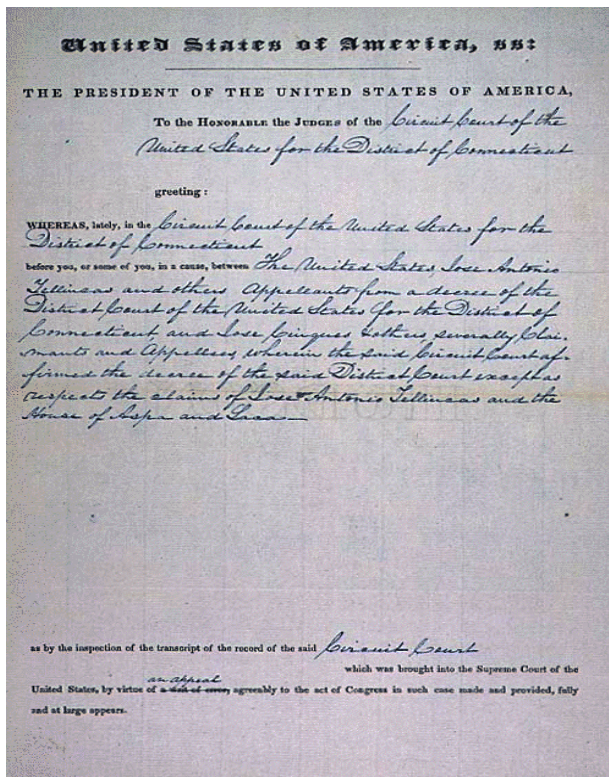 United States of America, ss:
THE PRESIDENT OF THE UNITED STATES OF AMERICA,
To the HONORABLE the JUDGES of the Circuit Court of the
United States for the District of Connecticut
greeting:
WHEREAS, lately, in the Circuit Court of the United States for the
District of Connecticut
before you, or some of you, in a cause, between The United States, Jose Antonio
Tellincas and others, Appellants from a decree of the
District Court of the United States for the District of
Connecticut, and Jose Cinques & others, severally Clai-
mants and Appellees, wherein the said Circuit Court af-
firmed the decree of the said District Court except as
respects the claims of Jose Antonio Tellincas and the
House of Aspa and Laca—
as by the inspection of the transcript of the record of the said Circuit Court
which was brought into the Supreme Court of the
an appeal
United States, by virtue of a writ of error, agreeably to the act of Congress in such case made and provided, fully
and at large appears.